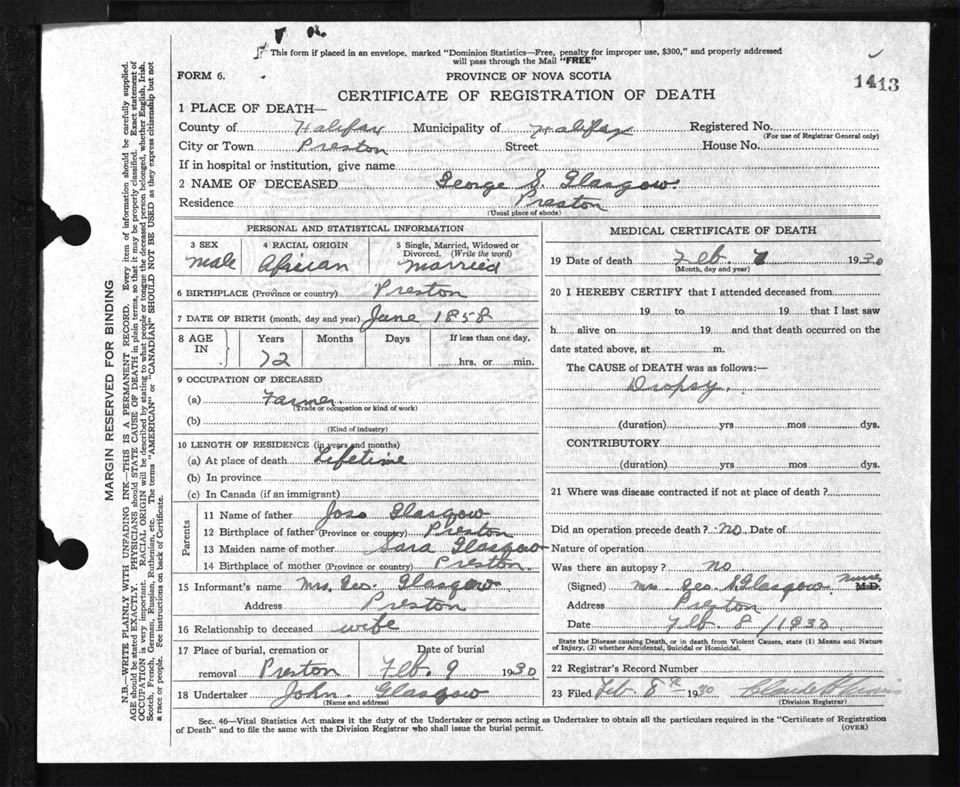 This form if placed in an envelope, marked "Dominion Statistics—Free, penalty for improper use, $300," and properly addressed
will pass through the Mail "FREE"
FORM 6.
PROVINCE OF NOVA SCOTIA
1413
CERTIFICATE OF REGISTRATION OF DEATH
1 PLACE OF DEATH—
County of Halifax Municipality of Halifax Registered No.
(For use of Registrar General only)
City or Town Preston Street House No.
If in hospital or institution, give name
2 NAME OF DECEASED George S. Glasgow.
Residence Preston
(Usual place of abode)
MARGIN RESERVED FOR BINDING
N.B.—WRITE PLAINLY WITH UNFADING INK—THIS IS A PERMANENT RECORD. Every item of information should be carefully supplied.
AGE should be stated EXACTLY. PHYSICIANS should STATE CAUSE OF DEATH in plain terms, so that it may be properly classified. Exact statement of
OCCUPATION is very important. RACIAL ORIGIN will be described by stating to what people or tongue the deceased person belonged, whether English, Irish,
Scotch, French, German, Russian, Ruthenian, etc. The terms "AMERICAN" or "CANADIAN" SHOULD NOT BE USED as they express citizenship but not
a race or people. See instructions on back of Certificate.
PERSONAL AND STATISTICAL INFORMATION
3 SEX
Male
4 RACIAL ORIGIN
African
5 Single, Married, Widowed or
Divorced. (Write the word)
Married
6 BIRTHPLACE (Province or country) Preston
7 DATE OF BIRTH (month, day and year) June 1858
8 AGE
IN
Years Months Days If less than one day,
72 hrs. or min.
9 OCCUPATION OF DECEASED
(a) Farmer
(Trade or occupation or kind of work)
(b)
(Kind of industry)
10 LENGTH OF RESIDENCE (in years and months)
(a) At place of death Lifetime
(b) In province
(c) In Canada (if an immigrant)
Parents
11 Name of father Joso Glasgow
12 Birthplace of father (Province or country) Preston
13 Maiden name of mother Sara Glasgow
14 Birthplace of mother (Province or country) Preston
15 Informant's name Mrs. Geo. Glasgow
Address Preston
16 Relationship to deceased wife
17 Place of burial, cremation or
removal Preston
Date of burial
Feb. 9 1930
18 Undertaker John. Glasgow
(Name and address)
MEDICAL CERTIFICATE OF DEATH
19 Date of death Feb. 7 1930
(Month, day and year)
20 I HEREBY CERTIFY that I attended deceased from
19 to 19 that I last saw
h alive on 19 and that death occurred on the
date stated above, at m.
The CAUSE of DEATH was as follows:—
Dropsy.
(duration) yrs mos dys.
CONTRIBUTORY
(duration) yrs mos dys.
21 Where was disease contracted if not at place of death?
Did an operation precede death? no Date of
Nature of operation
Was there an autopsy? no
(Signed) Mrs Geo. S. Glasgow M.D.
Address Preston
Date Feb. 8 /1930
State the Disease causing Death, or in death from Violent Causes, state (1) Means and Nature
of Injury, (2) whether Accidental, Suicidal or Homicidal.
22 Registrar's Record Number
23 Filed Feb 8th 1930
(Division Registrar)
Sec. 46—Vital Statistics Act makes it the duty of the Undertaker or person acting as Undertaker to obtain all the particulars required in the "Certificate of Registration
of Death" and to file the same with the Division Registrar who shall issue the burial permit.
(OVER)